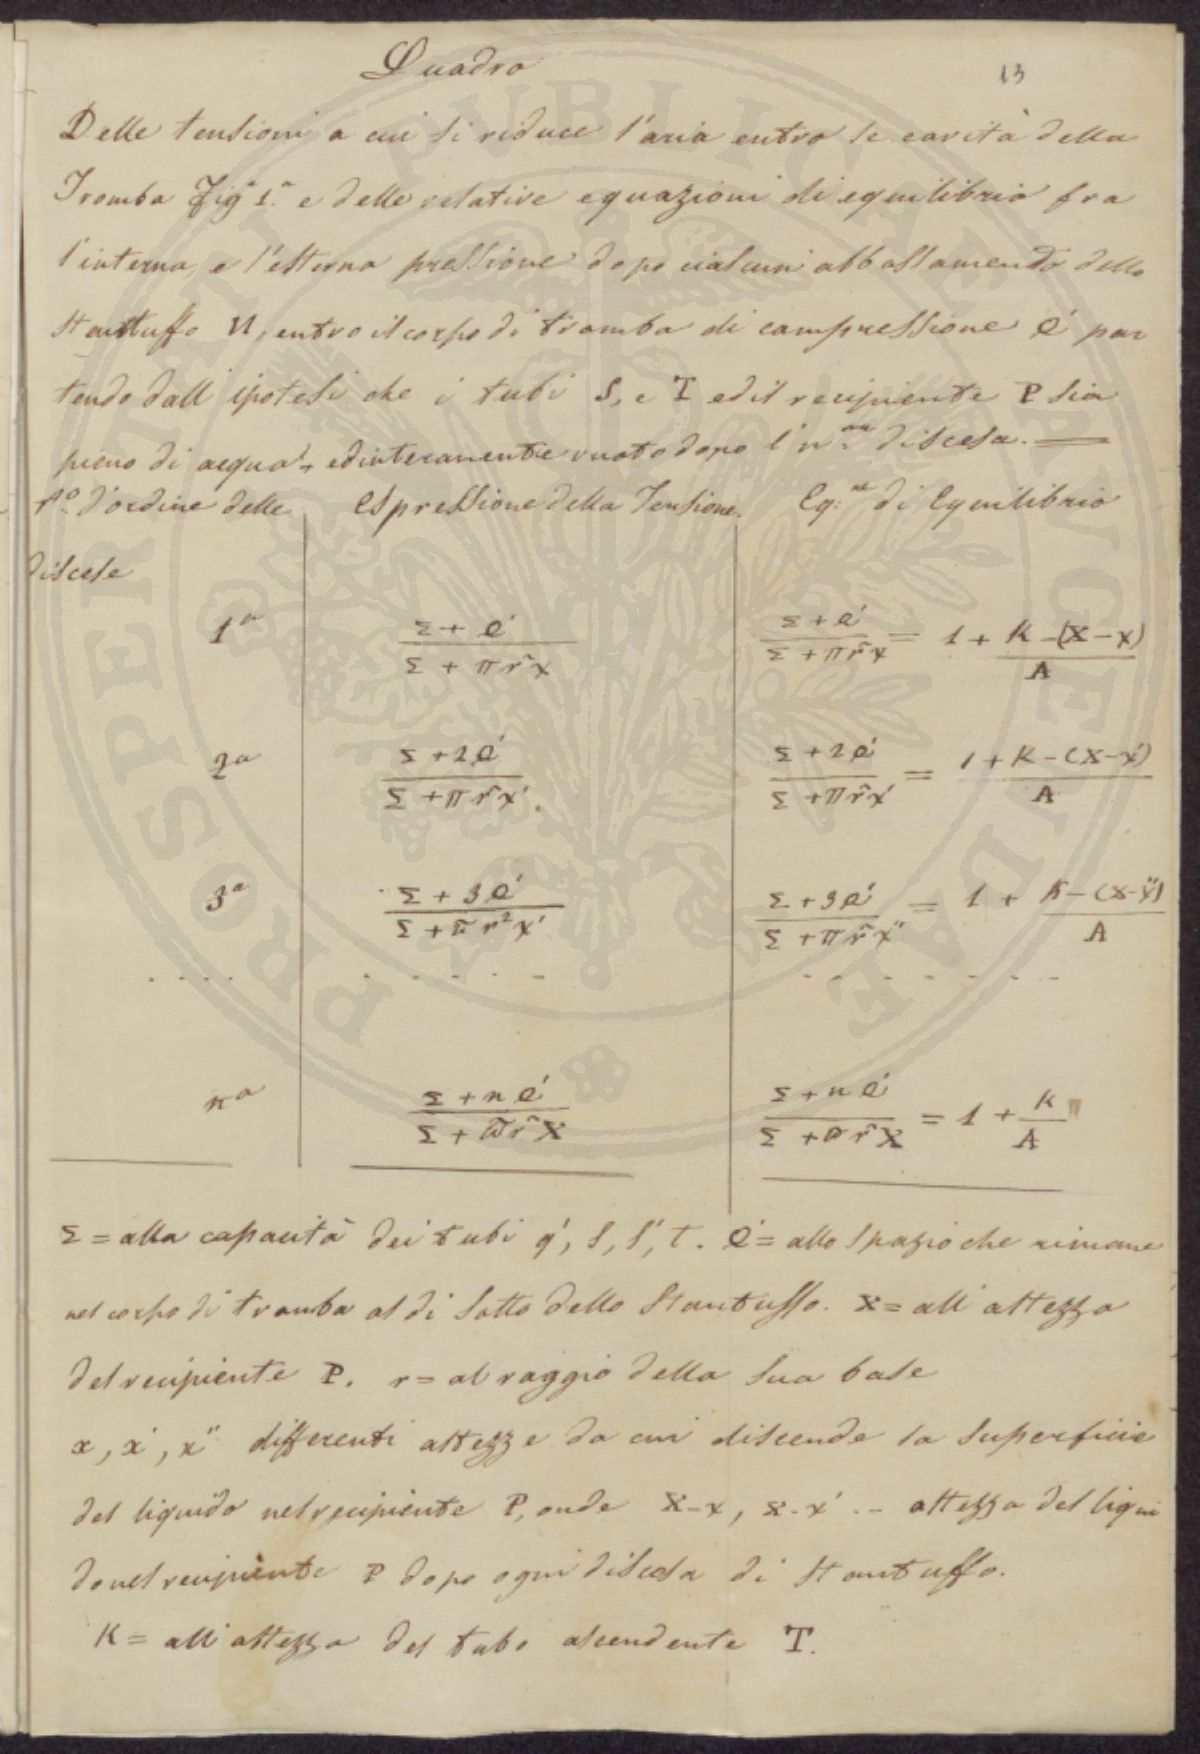 Quadro
13
Delle tensioni a cui si riduce l'aria entro le cavità della
Tromba Fig.ª 1.ª e delle relative equazioni di equilibrio fra
l'interna e l'esterna pressione dopo ciascun abbassamento dello
Stantuffo N, entro il corpo di tromba di compressione Q' par
tendo dall'ipotesi che i tubi S, e T ed il recipiente P sia
pieno di acqua, ed interamente vuoto dopo l'nma discesa. —
N.º d'ordine delle discese | Espressione della Tensione. | Eq.ne di Equilibrio
1ª | (Σ + Q') / (Σ + πr²x) | (Σ + Q') / (Σ + πr²x) = 1 + (K - (X - x)) / A
2ª | (Σ + 2Q') / (Σ + πr²x') | (Σ + 2Q') / (Σ + πr²x') = (1 + K - (X - x')) / A
3ª | (Σ + 3Q') / (Σ + πr²x') | (Σ + 3Q') / (Σ + πr²x'') = 1 + (K - (X - x'')) / A
. . . . | . . . . . | . . . . . . . .
nª | (Σ + nQ') / (Σ + πr²X) | (Σ + nQ') / (Σ + πr²X) = 1 + K / A
Σ = alla capacità dei tubi q', S, S', T. Q' = allo spazio che rimane
nel corpo di tromba al di sotto dello Stantuffo. X = all'altezza
del recipiente P. r = al raggio della sua base
x, x', x'' differenti altezze da cui discende la superficie
del liquido nel recipiente P, onde X-x, X-x' .. altezza del liqui
do nel recipiente P dopo ogni discesa di Stantuffo.
K = all'altezza del tubo ascendente T.
PROSPERITATI PUBLICAE AUGENDAE